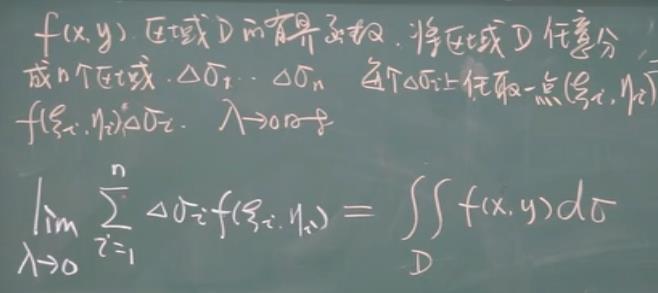 f(x,y). 区域D的有界函数. 将区域D任意分
成n个区域. Δσ₁.. Δσₙ 每个Δσᵢ上任取一点(ξᵢ,ηᵢ)
f(ξᵢ,ηᵢ)Δσᵢ. λ→0时
lim_{λ→0} ∑_{i=1}^{n} Δσᵢf(ξᵢ,ηᵢ) = ∬_D f(x,y)dσ